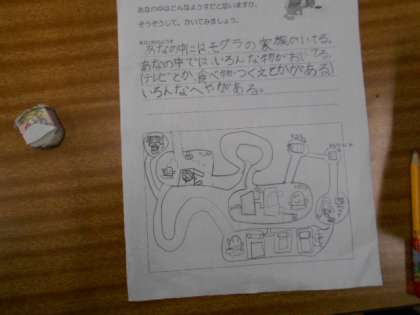 あなの中はどんなようすだと思いますか。
そうぞうして、かいてみましょう。
あなの中にはモグラの家族がいてる。
あなの中では いろんな物がおいてる。
(テレビとか 食べ物 つくえとかがある)
いろんなへやがある。